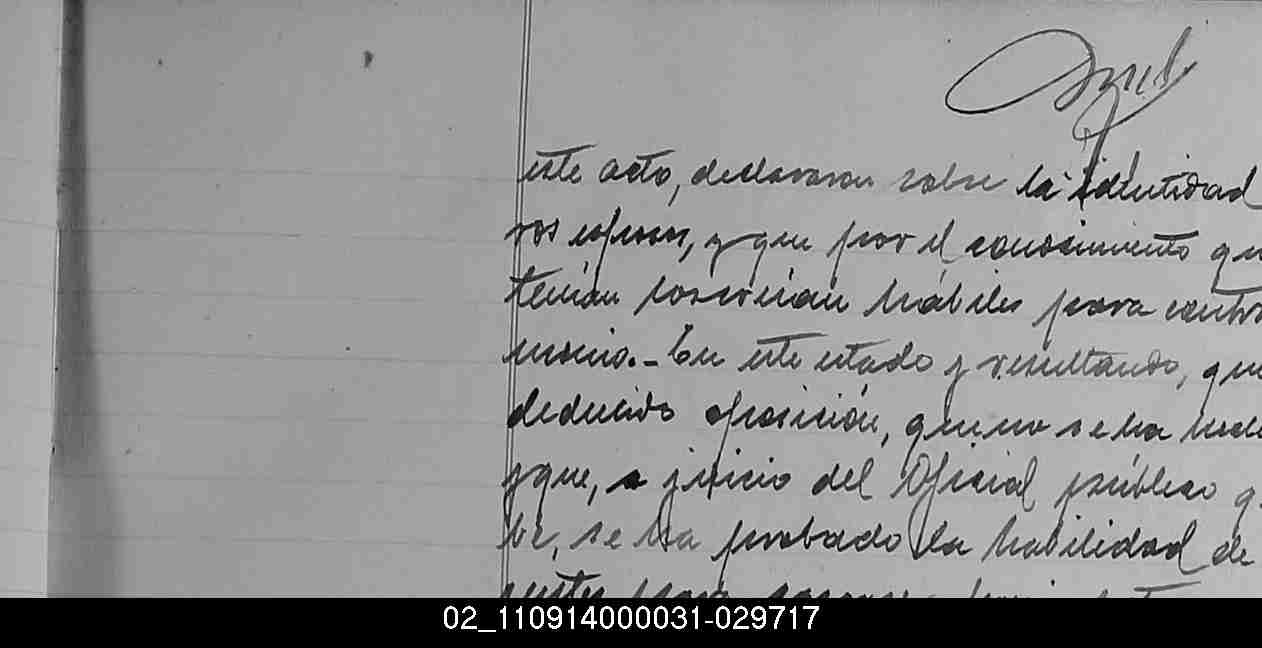 este acto, declararon sobre la identidad
ros esposos, y que por el conocimiento qu
tenían los creían hábiles para contra
monio.- En este estado y resultando, que
deducido oposición, que no se ha hech
y que, a juicio del Oficial público q
be, se ha probado la habilidad de
02_110914000031-029717